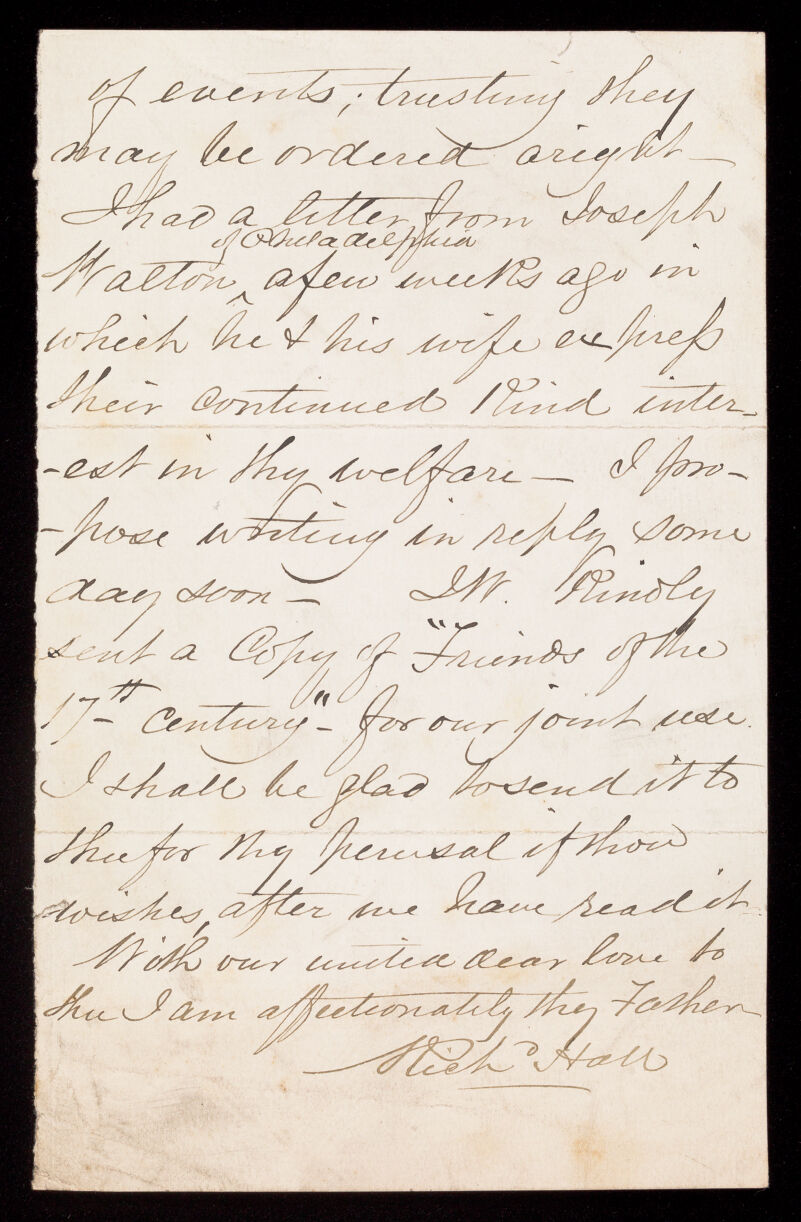 of events; trusting they
may be ordered aright —
I had a letter from Joseph
of Philadelphia
Walton ^ a few weeks ago in
which he & his wife express
their continued kind inter-
-est in thy welfare — I pro-
-pose writing in reply some
day soon — J W. kindly
sent a Copy of "Friends of the
17th century" - for our joint use.
I shall be glad to send it to
thee for thy perusal if thou
wishes, after we have read it.
With our united dear love to
thee I am affectionately thy Father
Richd Hall